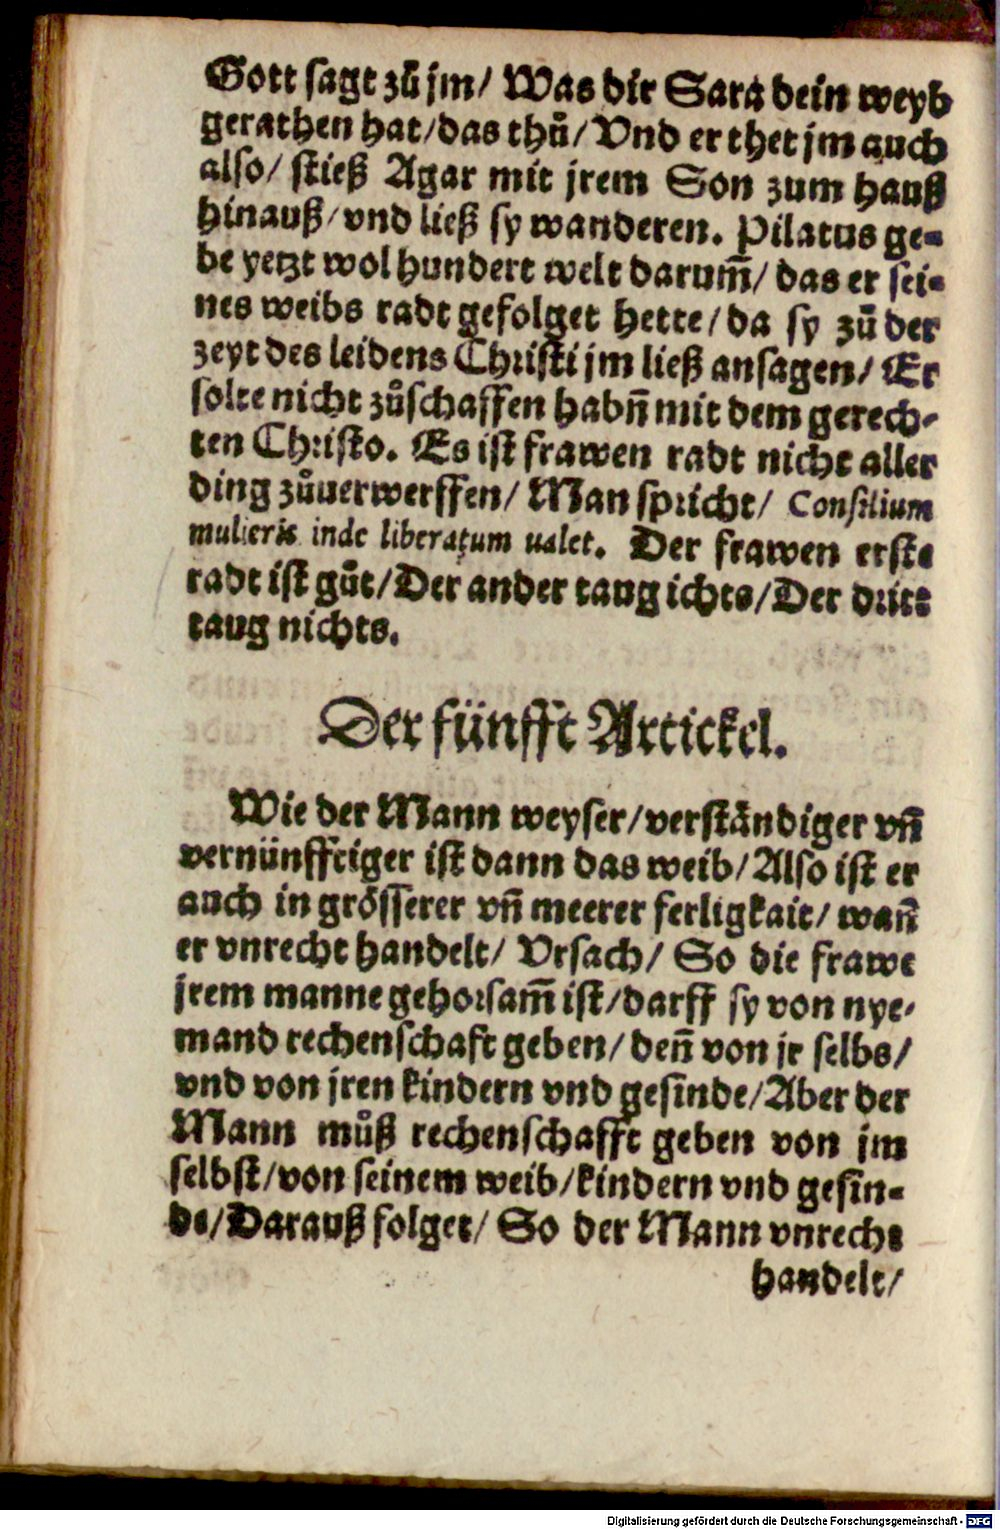 Gott sagt zů jm/ Was dir Sara dein weyb
gerathen hat/das thů/Vnd er thet jm auch
also/ stieß Agar mit jrem Son zum hauß
hinauß/vnd ließ sy wanderen. Pilatus ge-
be yetzt wol hundert welt darum̃/ das er sei-
nes weibs radt gefolget hette/da sy zů der
zeyt des leidens Christi jm ließ ansagen/ Er
solte nicht zůschaffen habñ mit dem gerech-
ten Christo. Es ist frawen radt nicht aller
ding zůuerwerffen/ Man spricht/ Consilium
mulieris inde liberatum ualet. Der frawen erste
radt ist gůt/Der ander taug ichts/Der dritt
taug nichts.
Der fünfft Artickel.
Wie der Mann weyser/verständiger vñ
vernünfftiger ist dann das weib/Also ist er
auch in grösserer vñ meerer ferligkait/ wañ
er vnrecht handelt/ Vrsach/ So die frawe
jrem manne gehorsam̃ ist/darff sy von nye-
mand rechenschaft geben/ deñ von jr selbs/
vnd von jren kindern vnd gesinde/Aber der
Mann můß rechenschafft geben von jm
selbst/von seinem weib/kindern vnd gesin-
de/Darauß folget/ So der Mann vnrecht
handelt/
Digitalisierung gefördert durch die Deutsche Forschungsgemeinschaft - DFG